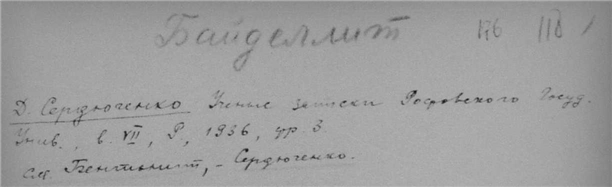 Байделлит 176 118
Д. Сердюченко Ученые записки Ростовского Госуд.
Унив., в. VII, Р, 1936, стр. 3
см. Бентонит, - Сердюченко.